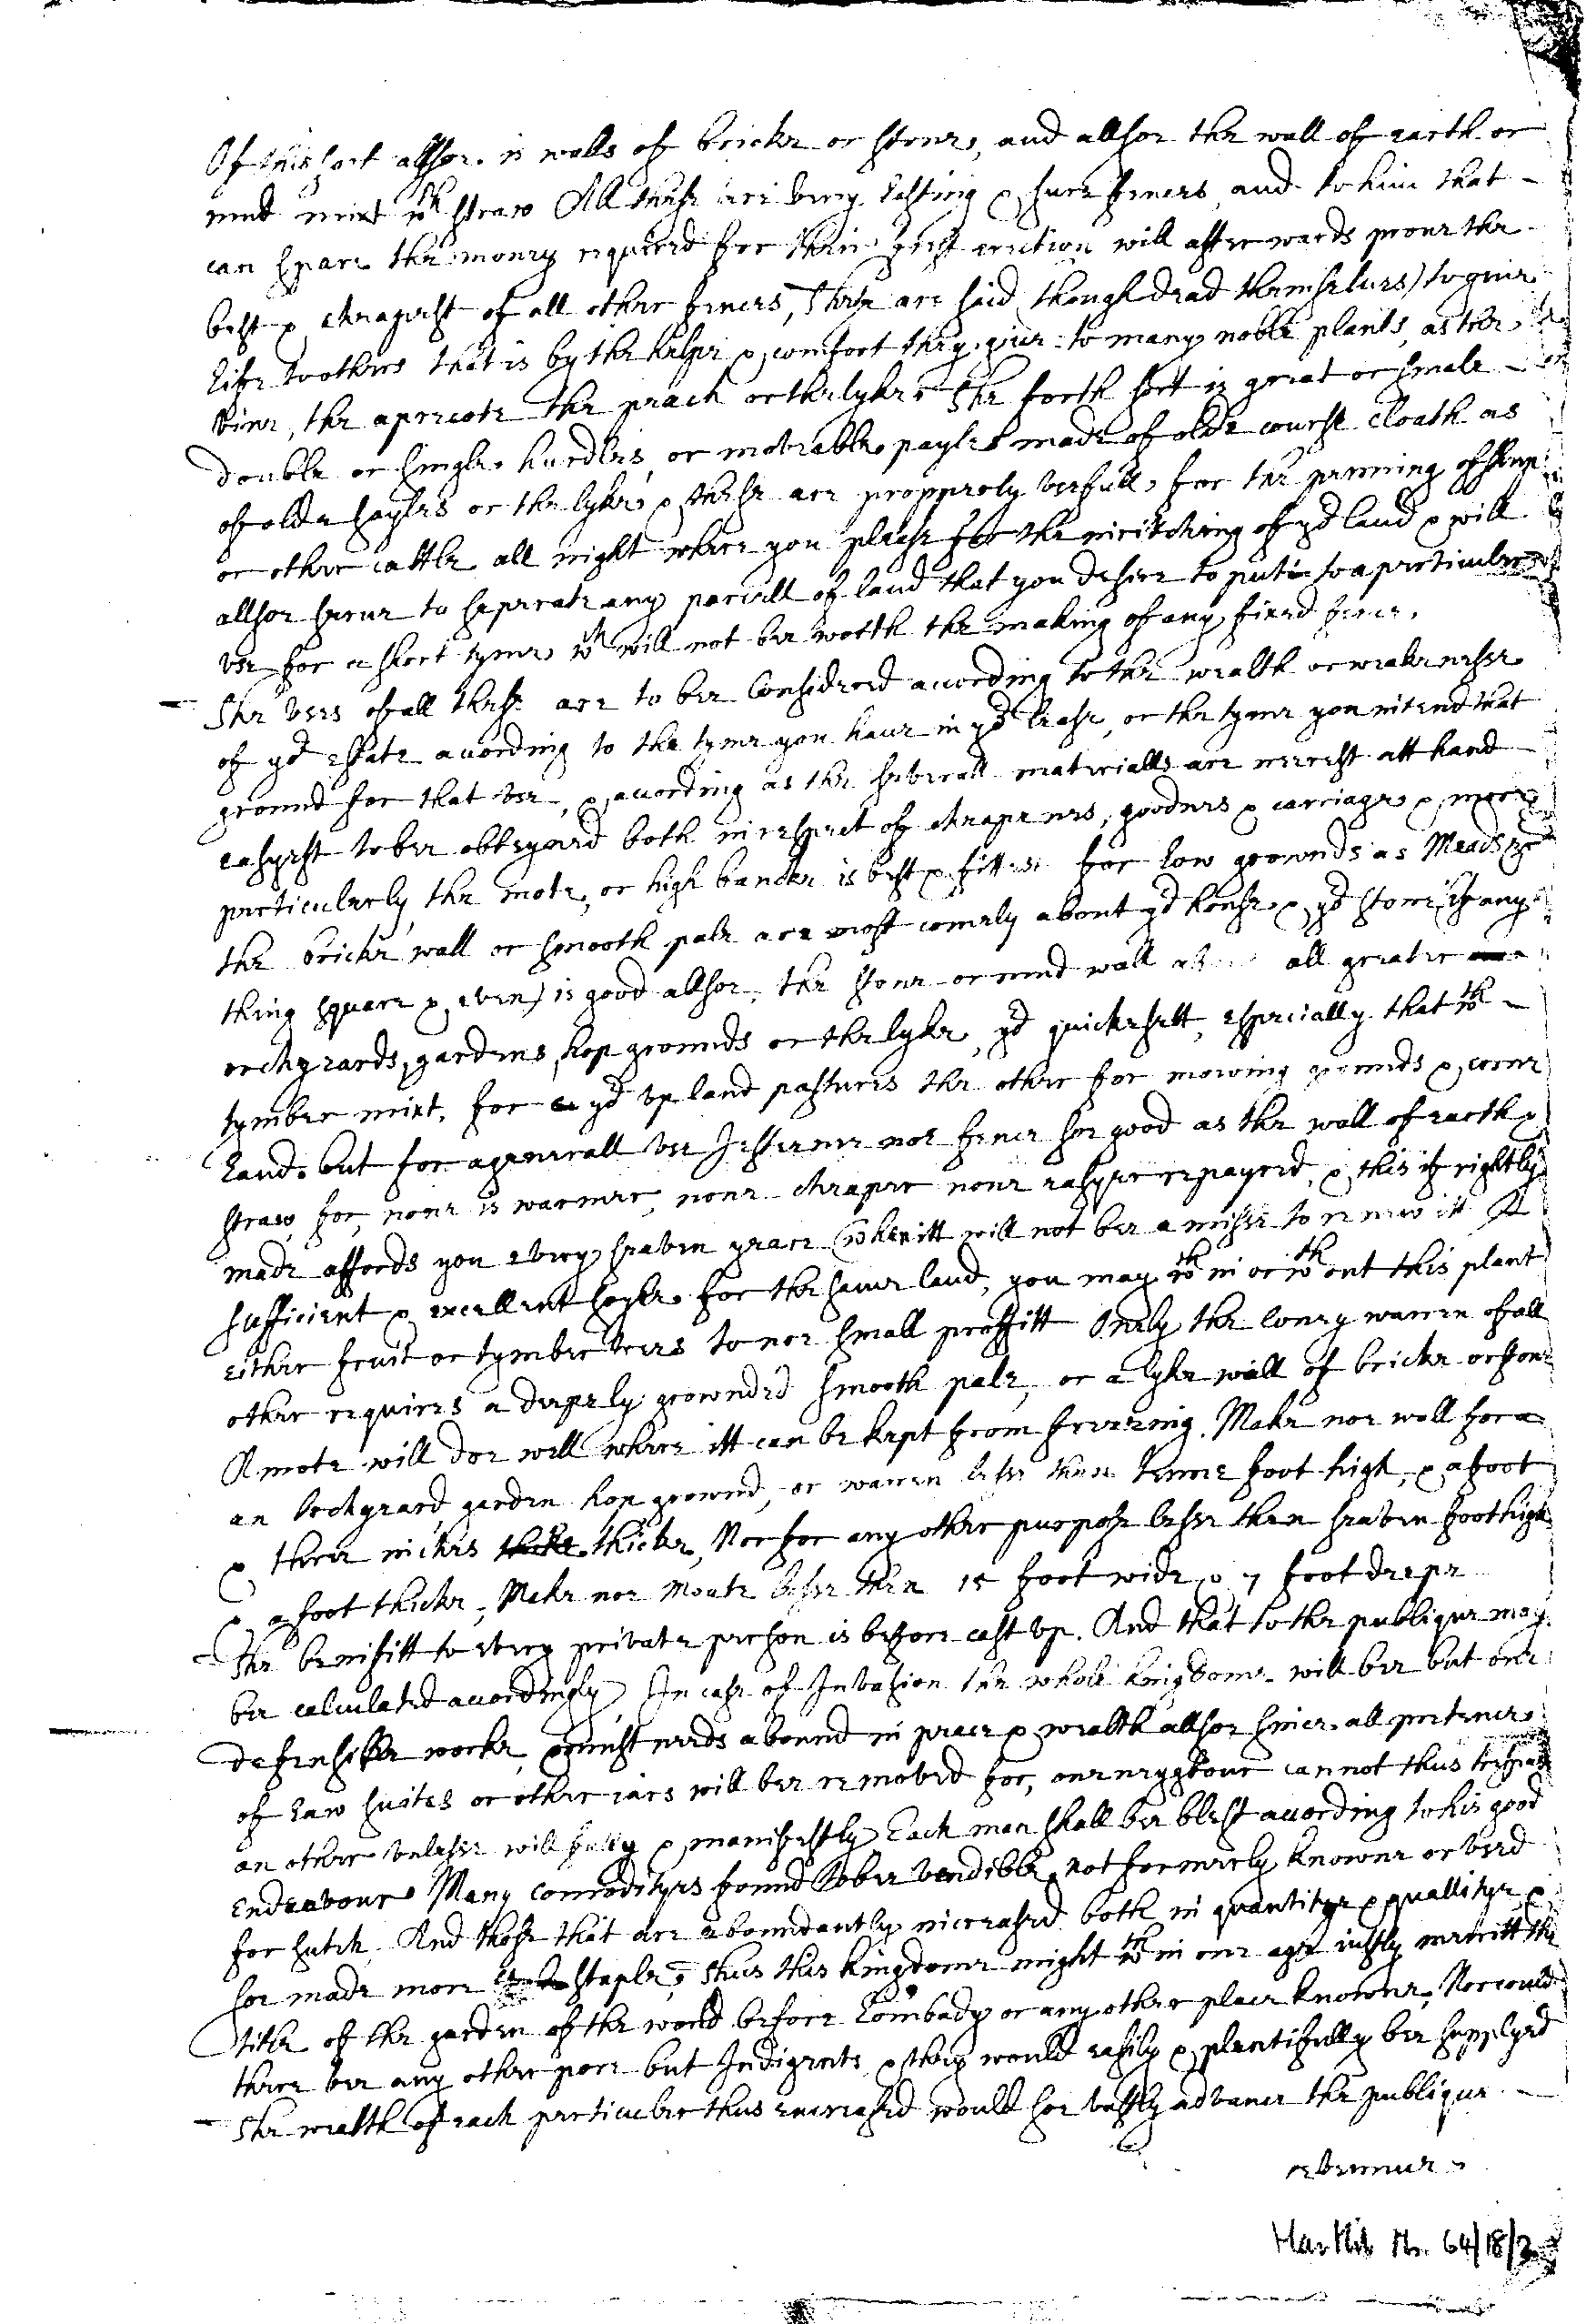 Of this sort allsoe is walls of bricke or stone, and allsoe the wall of earth or
mud mixt wth straw All these are very lasting & sure fences, and to him that -
can spare the money requeerd for their first erection will afterwards proue the
best & cheapest of all other fences, These are said (though dead themselues) to giue
Life to others that is by the helpe & comfort they giue to many noble plants, as the
vine, the apricote the peach or the lyke The forth sort is great or smale -
double or single hurdles, or moveable payles made of olde course cloath as
of olde sayles or the lyke, & these are propperly vsefull for the penning of sheepe
or other cattle all night where you please for the inritching of yr land & will
allsoe serue to seperate any parcell of land that you desire to put to a perticuler
vse for a short tyme wch will not bee worth the making of any fixed fence.
- The vses of all these are to bee Considered according to the wealth or weakenesse
of yr estate according to the tyme you haue in yr lease, or the tyme you intend that
ground for that vse, & according as the severall materialls are neerest att hand
easyest to bee obteyned both in respect of cheapenes, goodnes & carriage & more
perticulerly, the mote, or high bancke is best & fittest for low grownds as Meads &c
the bricke wall or smooth pale are most comely about yr house & yr stone (if any
thing square & even) is good allsoe, the stone or mud wall all greater
orchyeards, gardens, hop grounds or the lyke, yr quickesett, especially that wth -
tymber mixt, for yr vpland pastures the other for mowing grounds & corne
land. but for a generall vse I esteeme noe fence soe good as the wall of earth &
straw, for, none is warmer, none cheaper none easyer repayerd, & this if rightly
made affords you every seaven yeare (when itt will not bee amisse to renew itt) A
sufficient & excellent soyle for the same land, you may wth in or wth out this plant
either fruit or tymber trees to noe small proffitt Onely the coney warren of all
other requires a deepely grownded smooth pale, or a lyke wall of bricke or stone
A mote will doe well where itt can be kept from freezing. Make noe wall for a
an orchyeard, garden hop grownd, or warren lesse then tenne foot high, & a foot
& three inches thicke, Nor for any other purpose lesse then seaven foot high
& a foot thicke, Make noe Moate lesse then 15 foot wide & 7 foot deepe
- The benifitt to every private person is before cast vp. And that to the publique may
bee calculated accordingly, In case of Invasion the whole kingdome will bee but one
defensible worke, & must needs abound in peace & wealth allsoe since all pretence
of law suites or other iars will bee removed for, one neyghbour cannot thus trespass
an other vnlesse willfully & manifestly Each man shall bee blest according to his good
Endeavour Many comodityes found to bee vendible, not formerly knowne or vsed
for sutch And those that are aboundantly increased both in quantitye & quallitye &
soe made more staple, Thus this kingdome might wth in one age iustly meritt the
title of the garden of the world before Lombady or any other place knowne, Nor could
there bee any other pore but Indigents & they would easily & plentifully bee supplyed
- The wealth of each perticuler thus encreased would soe vastly advance the publique -
revennue
Hartlib Ms. 64/18/3